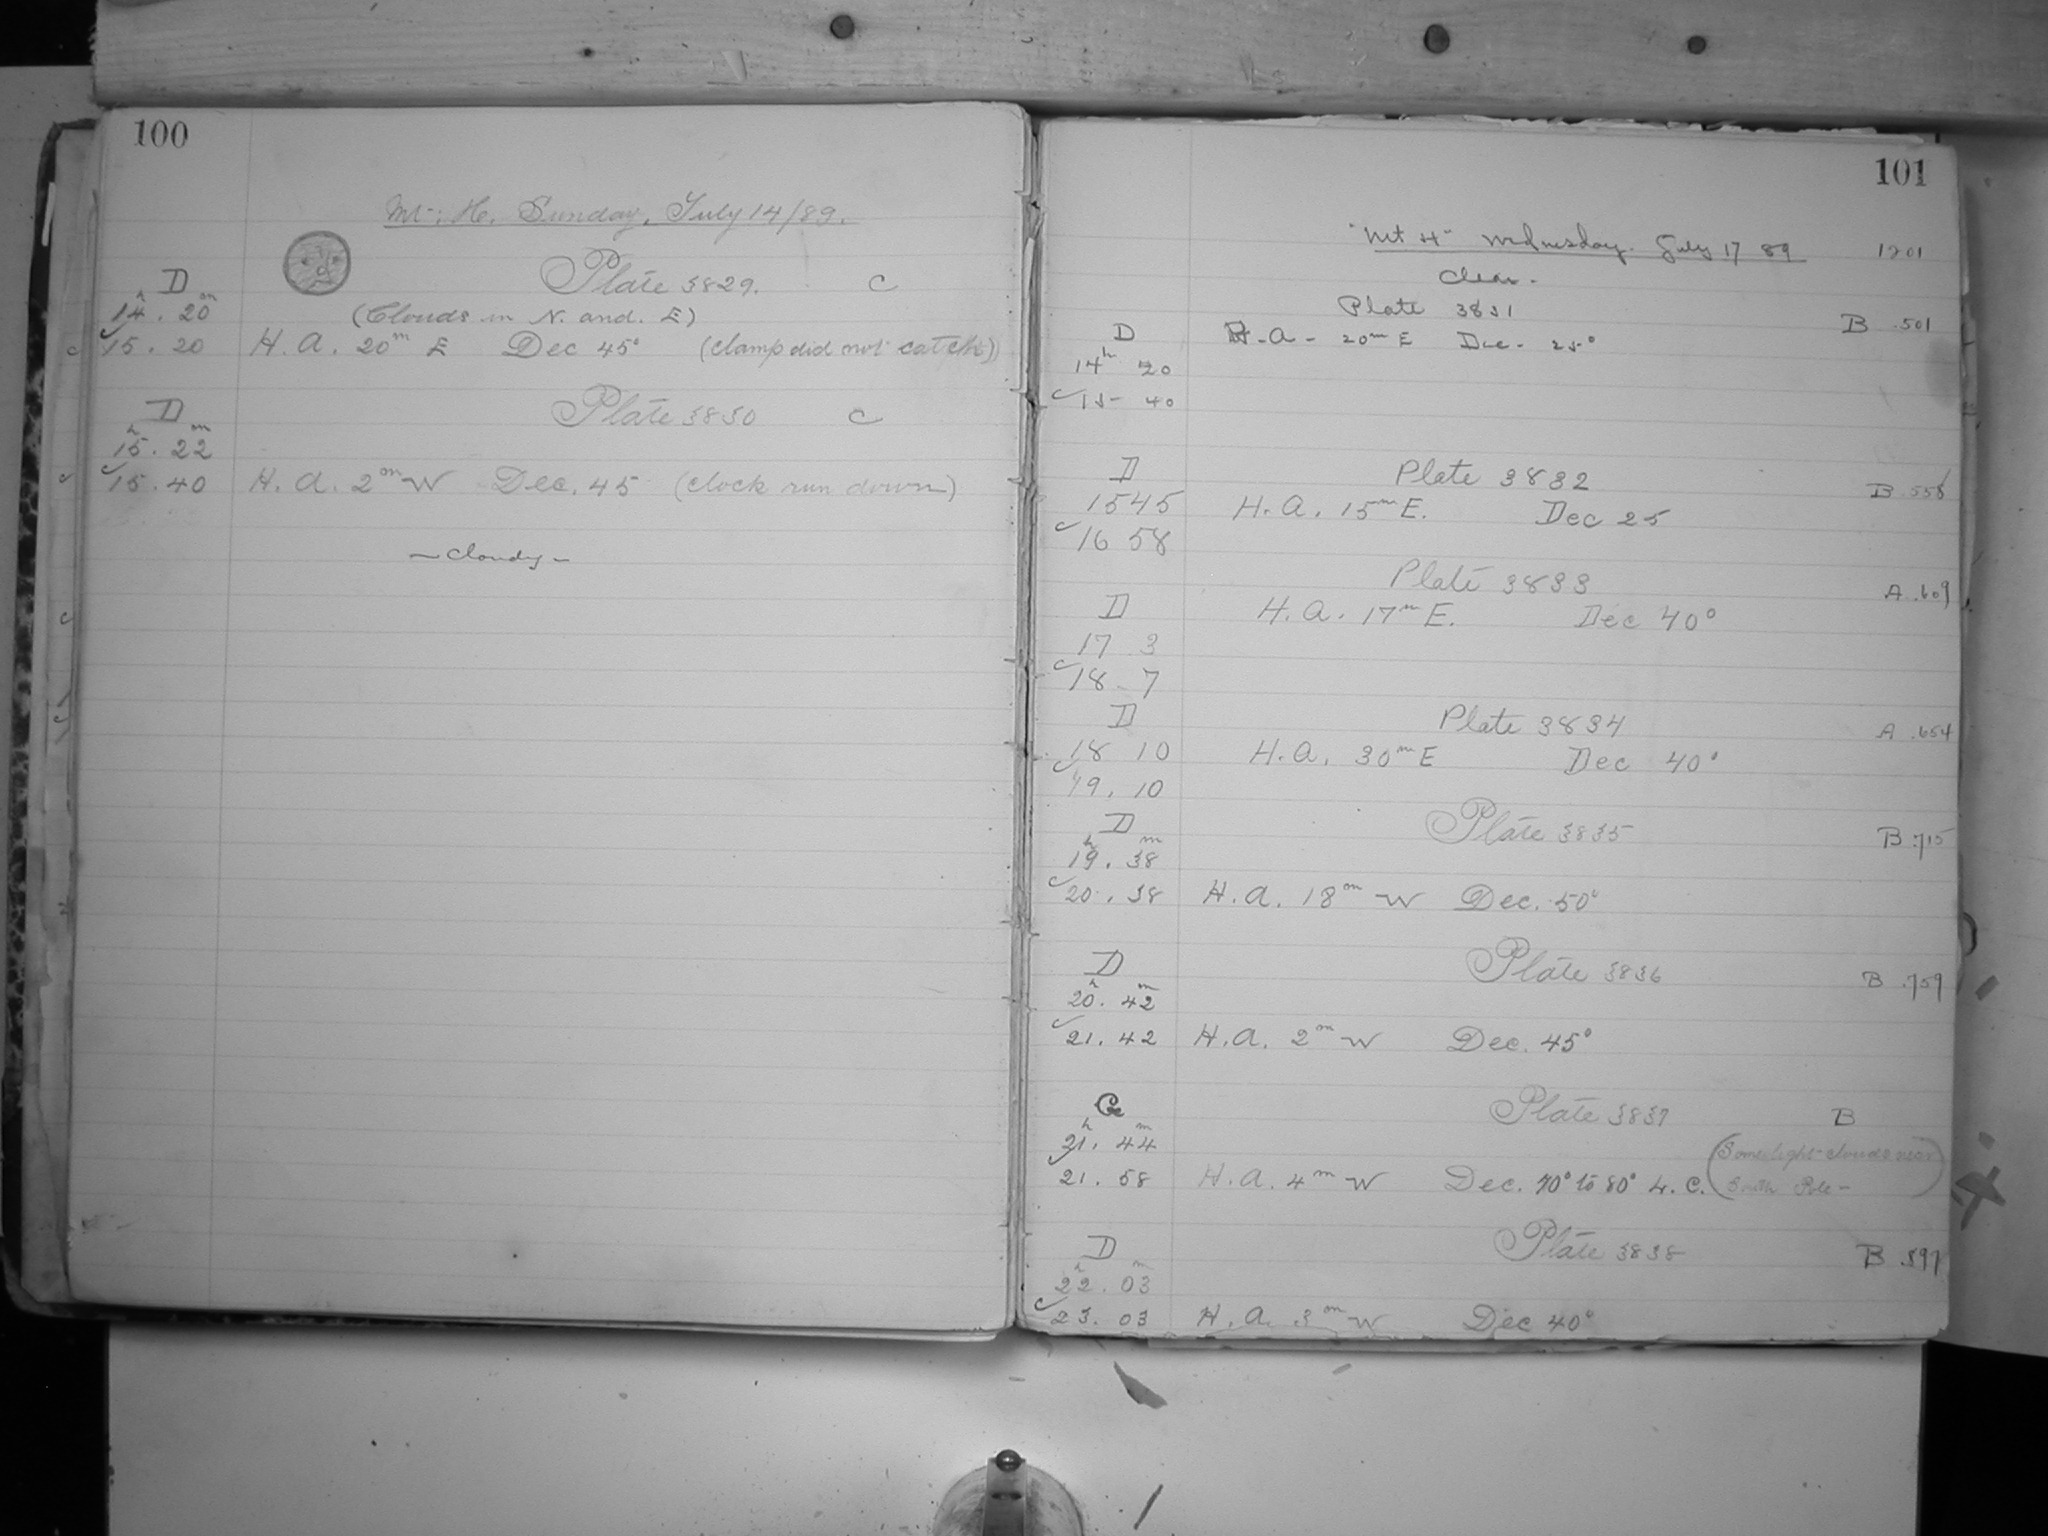 100
Mt. H. Sunday, July 14/89.
D Plate 3829. C
14h. 20m (Clouds in N. and. E)
15. 20 H. A. 20m E Dec 45° (clamp did not catch)
D Plate 3830 C
15h. 22m
15. 40 H. A. 2m W Dec. 45 (clock run down)
- Cloudy -
101
"Mt H" Wednesday. July 17 89
Clear.
Plate 3831 B .501
D H. A - 20m E Dec - 25°
14h 20
15- 40
D Plate 3832 B .558
15 45 H. A. 15m E. Dec 25
16 58
Plate 3833 A .609
D H. A. 17m E. Dec 40°
17 3
18 - 7
D Plate 3834 A .654
18 10 H. A. 30m E Dec 40°
19. 10
D Plate 3835 B .715
19h. 38m
20. 38 H. A. 18m W Dec. 50°
D Plate 3836 B .759
20h. 42m
21. 42 H. A. 2m W Dec. 45°
C Plate 3837 B
21h. 44m (Some light clouds near
21. 58 H. A. 4m W Dec. 70° to 80° L. C. South Pole -)
D Plate 3838 B
22h. 03m
23. 03 H. A. 3m W Dec 40°